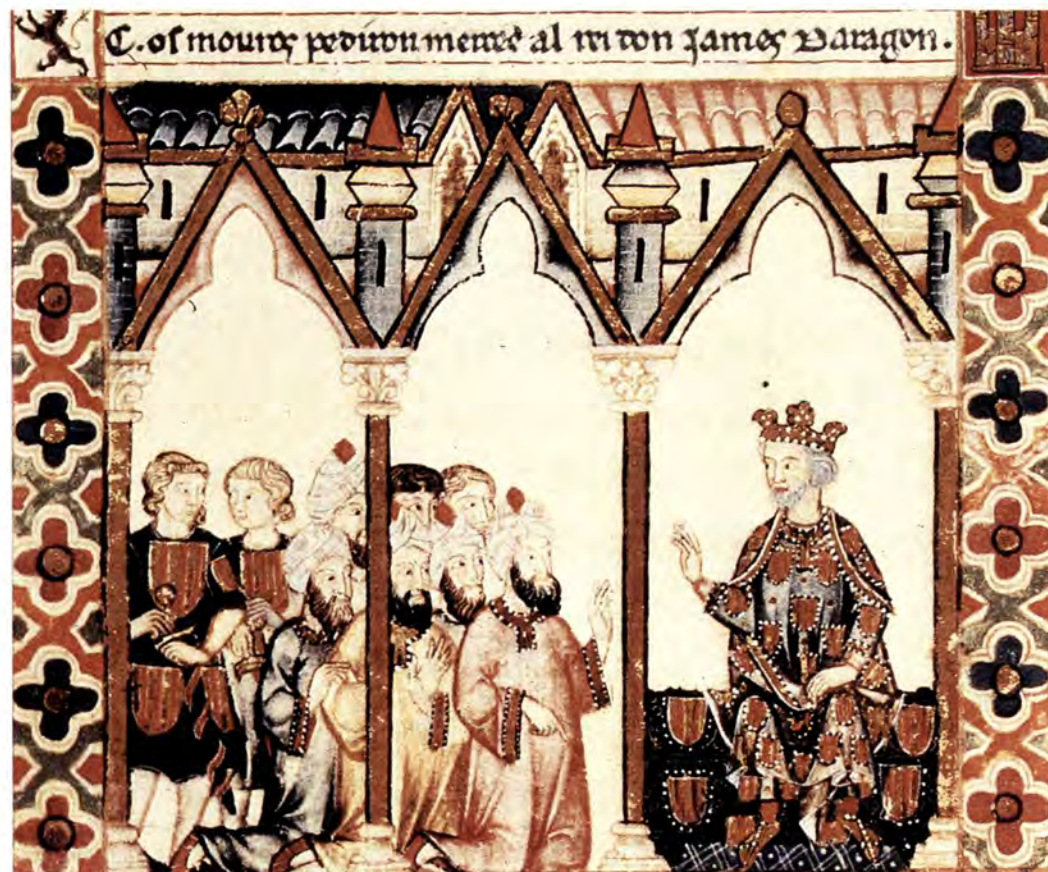 C. os mouros pediron merceé al rei don James Daragon.